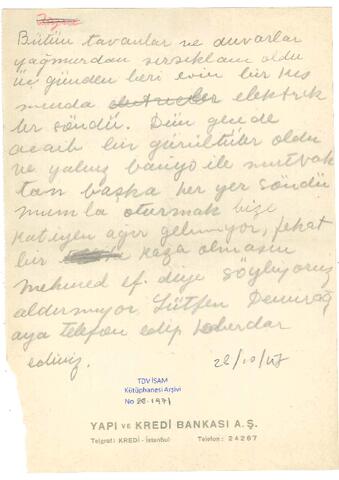 Bütün tavanlar ve duvarlar
yağmurdan sırsıklam oldu
üç günden beri evin bir kıs
mında elektrik
ler söndü. Dün gece de
acaib bir gürültüler oldu
ve yalnız banyo ile mutvak
tan başka her yer söndü
mumla oturmak bize
katiyen ağır gelmiyor, fakat
bir kaza olmasın
Mehmed ef. diye söylüyoruz
aldırmıyor. Lütfen Demirağ
aya telefon edip haberdar
ediniz.
28/10/47
TDV İSAM
Kütüphanesi Arşivi
No 2E-1971
YAPI ve KREDİ BANKASI A.Ş.
Telgraf: KREDİ - İstanbul Telefon: 24267